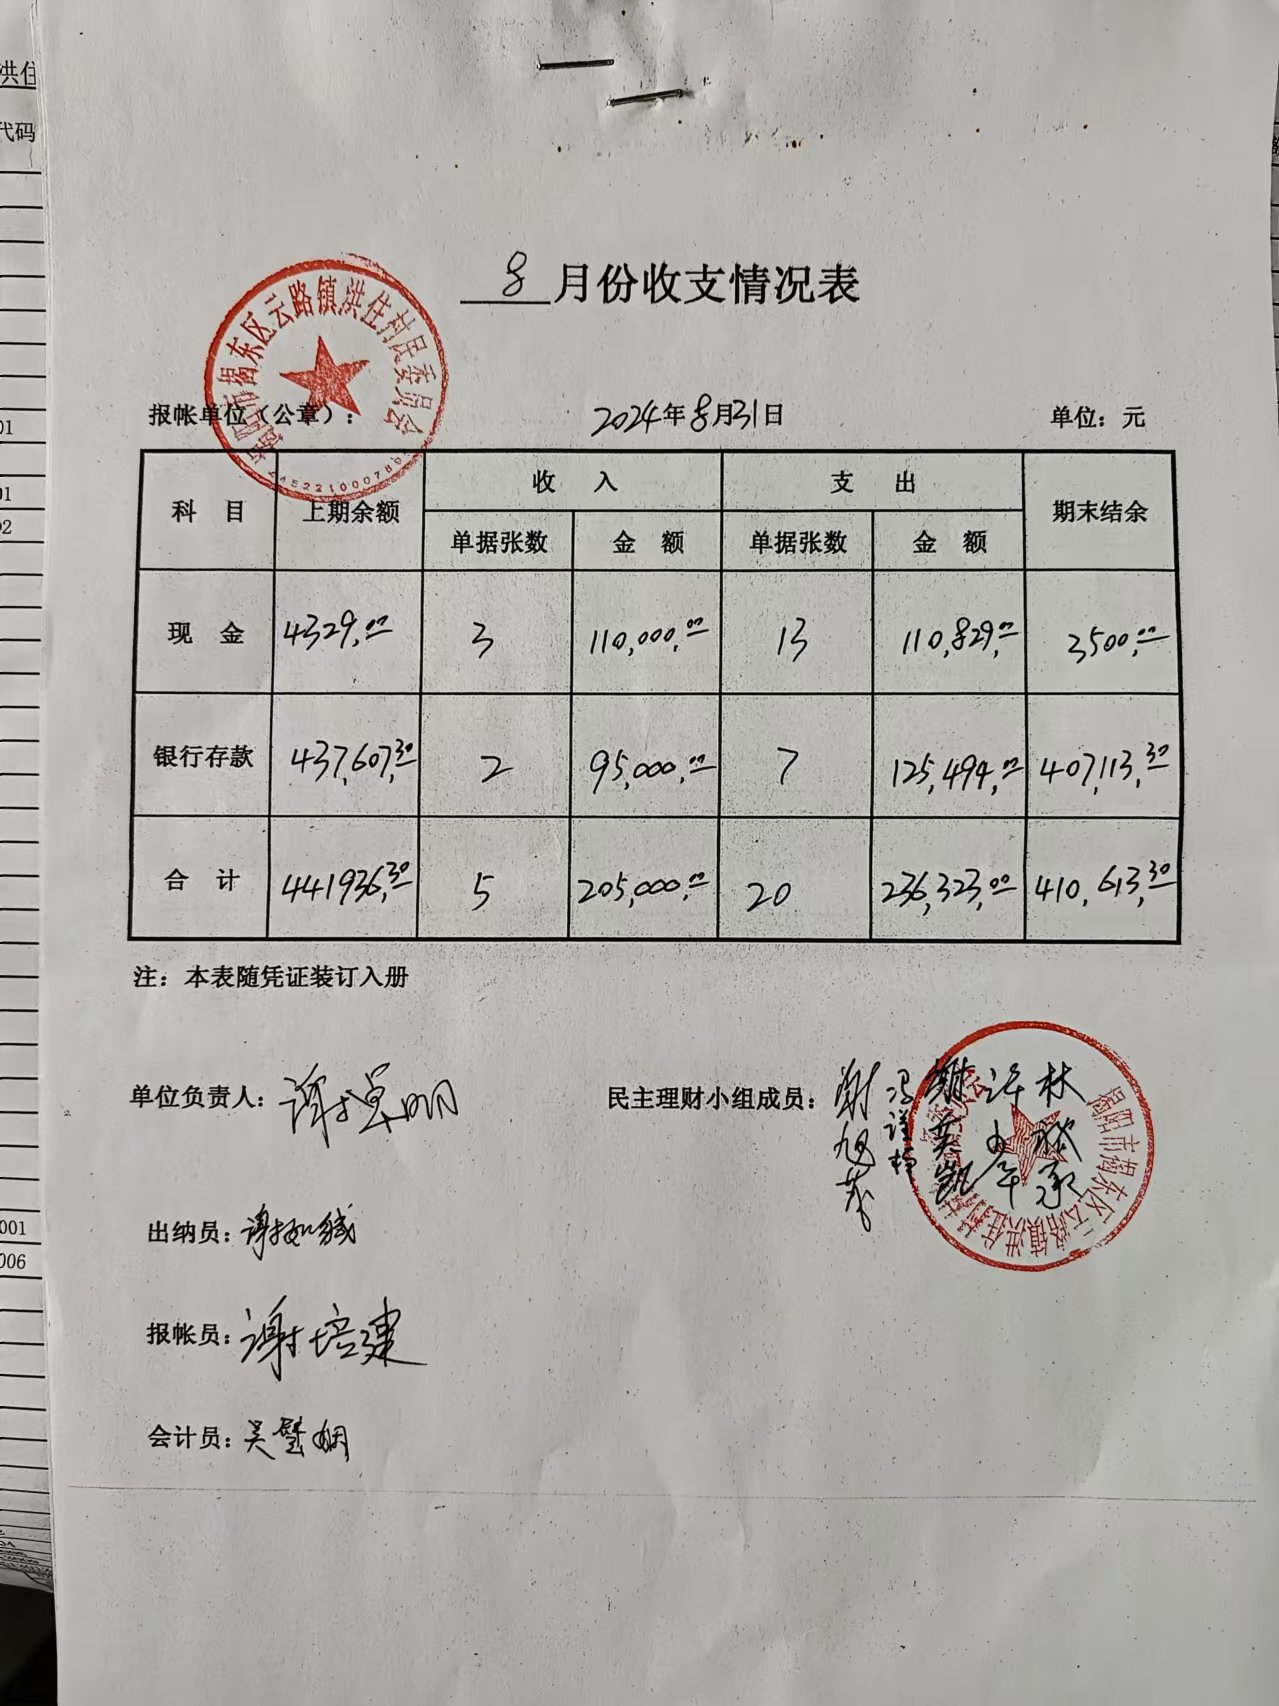 洪住
代码
8月份收支情况表
揭阳市揭东区云路镇洪住村民委员会
报帐单位（公章）： 2024年8月31日 单位：元
科目 上期余额 收入 支出 期末结余
单据张数 金额 单据张数 金额
现金 4329.00 3 110,000.00 13 110,829.00 3500.00
银行存款 437,607.30 2 95,000.00 7 125,494.00 407,113.30
合计 441936.30 5 205,000.00 20 236,323.00 410,613.30
注：本表随凭证装订入册
单位负责人：
民主理财小组成员：
揭阳市揭东区云路镇洪住村
出纳员：
报帐员：谢培建
会计员：
01
01
02
001
006